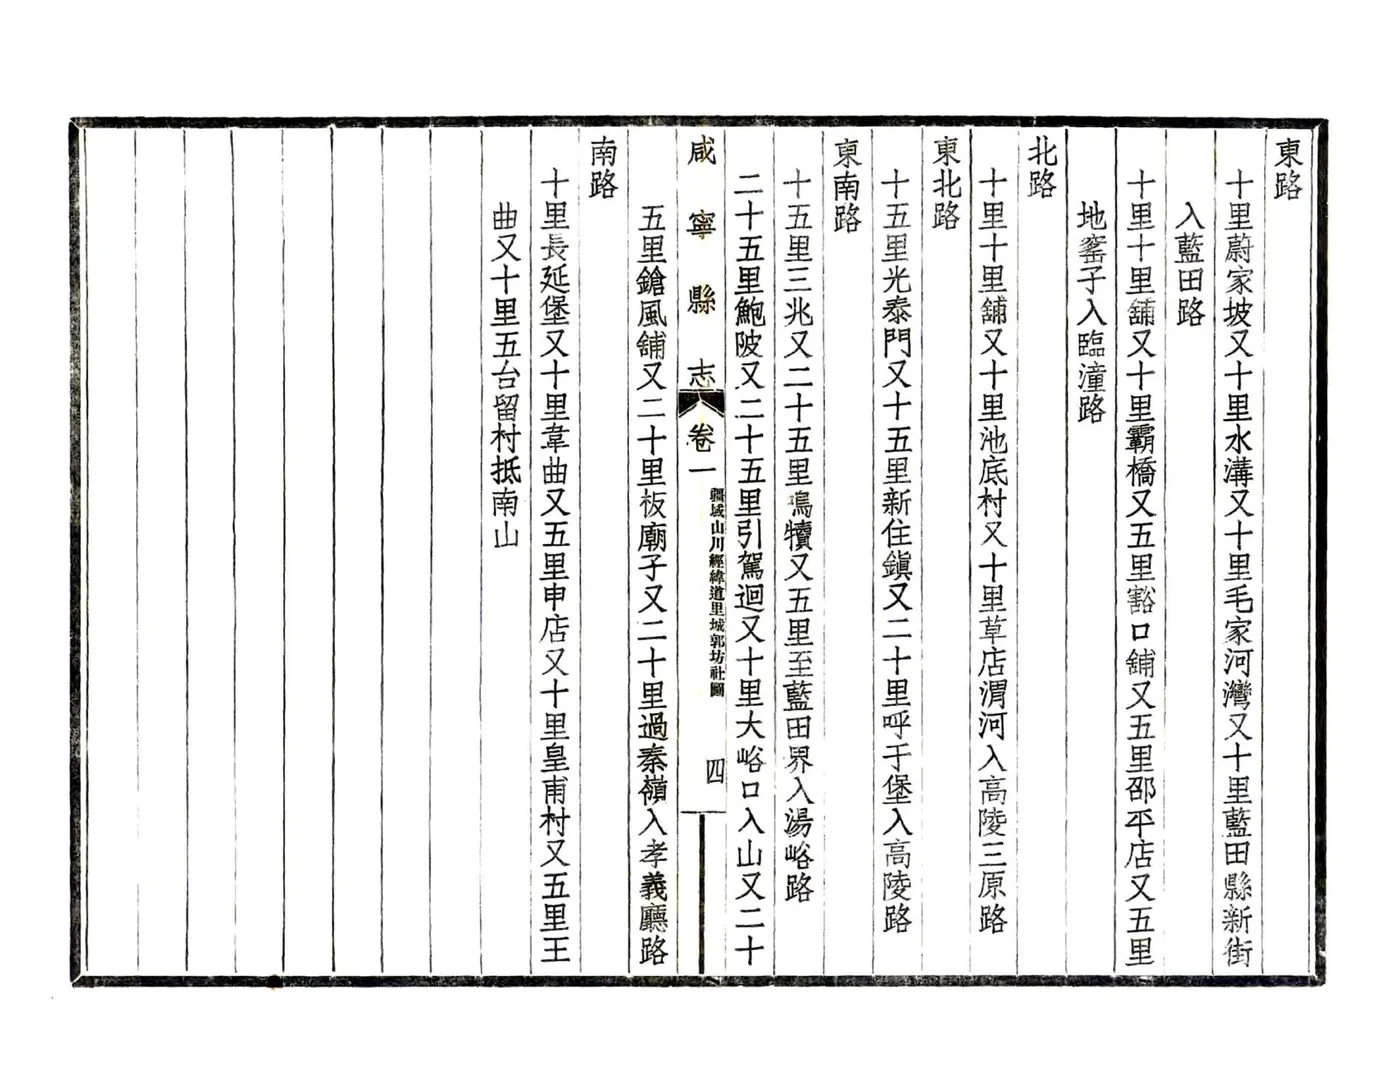 東路
十里蔚家坡又十里水溝又十里毛家河灣又十里藍田縣新街
入藍田路
十里十里舖又十里霸橋又五里豁口舖又五里邵平店又五里
地窰子入臨潼路
北路
十里十里舖又十里池底村又十里草店渭河入高陵三原路
東北路
十五里光泰門又十五里新住鎮又二十里呼于堡入高陵路
東南路
十五里三兆又二十五里鳴犢又五里至藍田界入湯峪路
二十五里鮑陂又二十五里引駕迴又十里大峪口入山又二十
咸寧縣志 卷一 疆域山川經緯道里城郭坊社圖 四
五里鎗風舖又二十里板廟子又二十里過秦嶺入孝義廳路
南路
十里長延堡又十里韋曲又五里申店又十里皇甫村又五里王
曲又十里五台留村抵南山